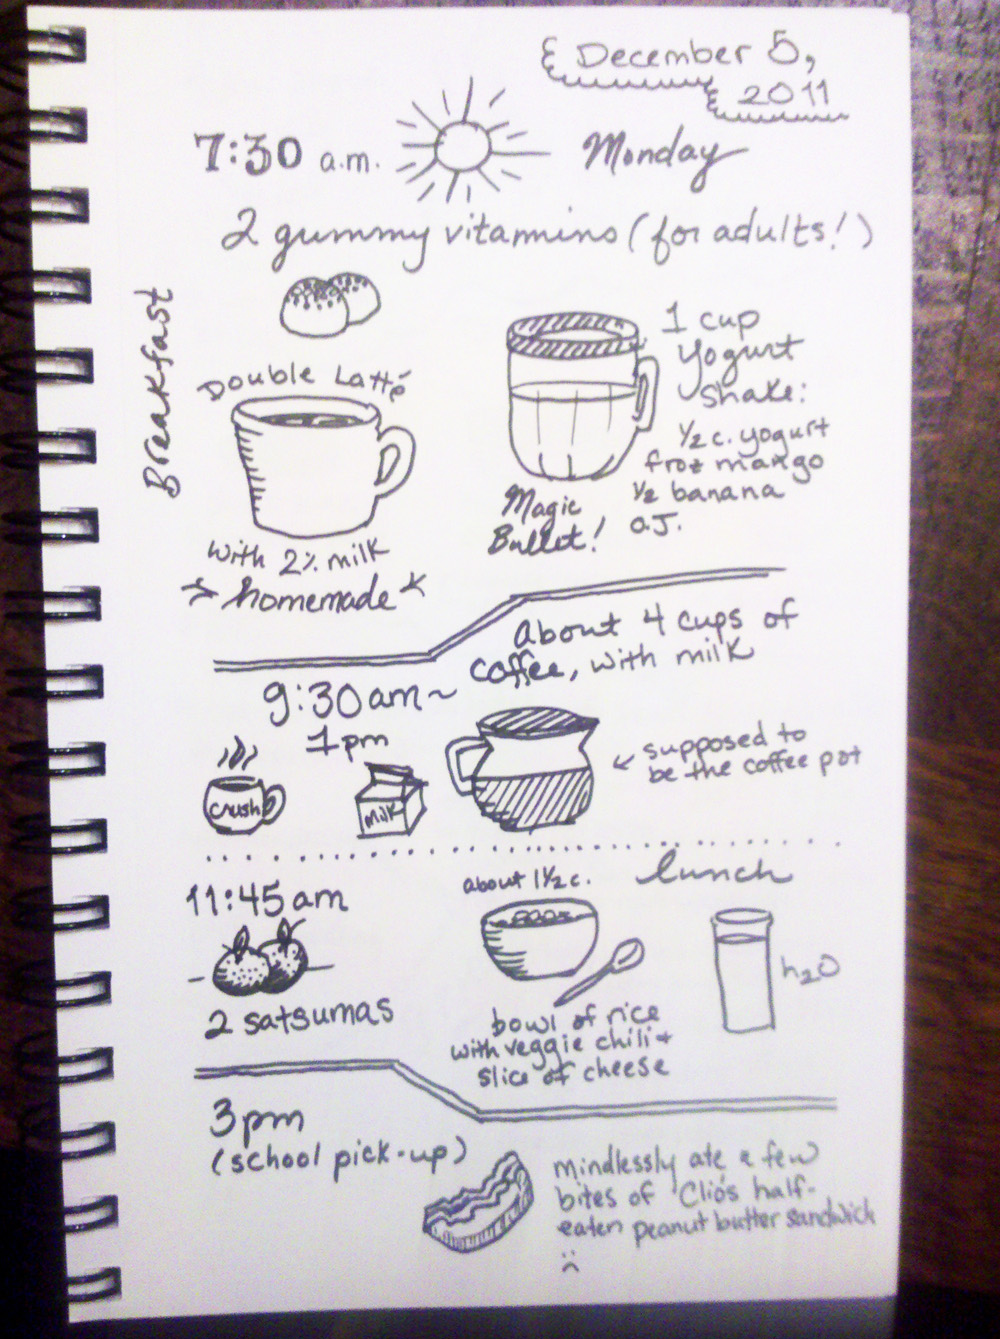 December 5,
2011
7:30 a.m.
Monday
2 gummy vitamins (for adults!)
Breakfast
Double Latté
with 2% milk
homemade
Magic
Bullet!
1 cup
Yogurt
Shake:
1/2 c. yogurt
froz mango
1/2 banana
O.J.
9:30 am ~
1 pm
about 4 cups of
coffee, with milk
crush
milk
← supposed to
be the coffee pot
11:45 am
2 satsumas
lunch
about 1 1/2 c.
bowl of rice
with veggie chili +
slice of cheese
h2O
3 pm
(school pick-up)
mindlessly ate a few
bites of Clio's half-
eaten peanut butter sandwich
:(